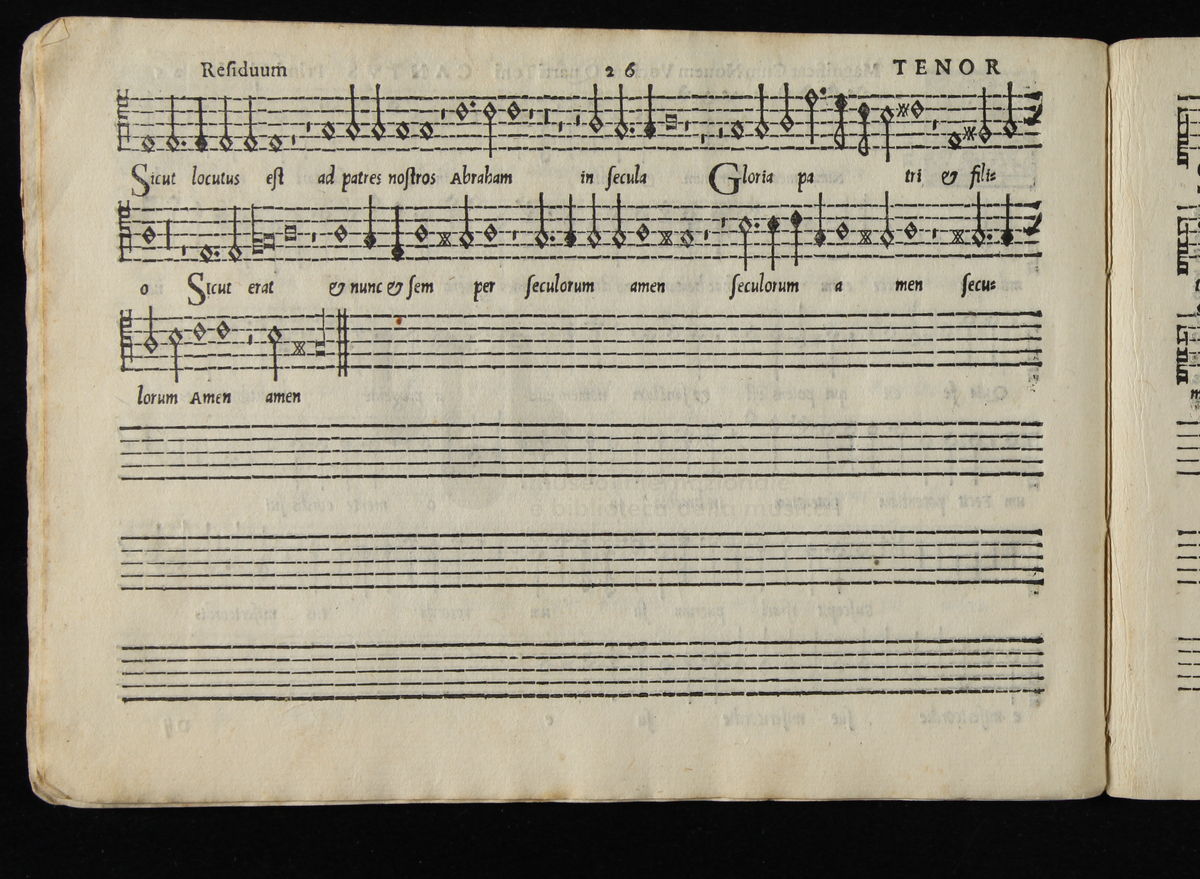 Residuum 26 TENOR
Sicut locutus est ad patres nostros Abraham in secula Gloria pa tri & fili=
o Sicut erat & nunc & sem per seculorum amen seculorum a men secu=
lorum Amen amen